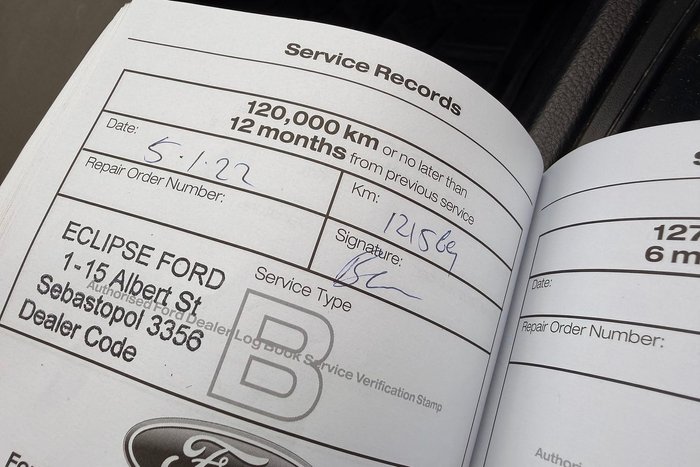 Service Records
120,000 km or no later than
12 months from previous service
Date:
5.1.22
Km:
Repair Order Number:
Signature:
ECLIPSE FORD
1-15 Albert St
Sebastopol 3356
Dealer Code
Service Type
B
Authorised Ford Dealer Log Book Service Verification Stamp
Ford
127
6 m
Date:
Repair Order Number: